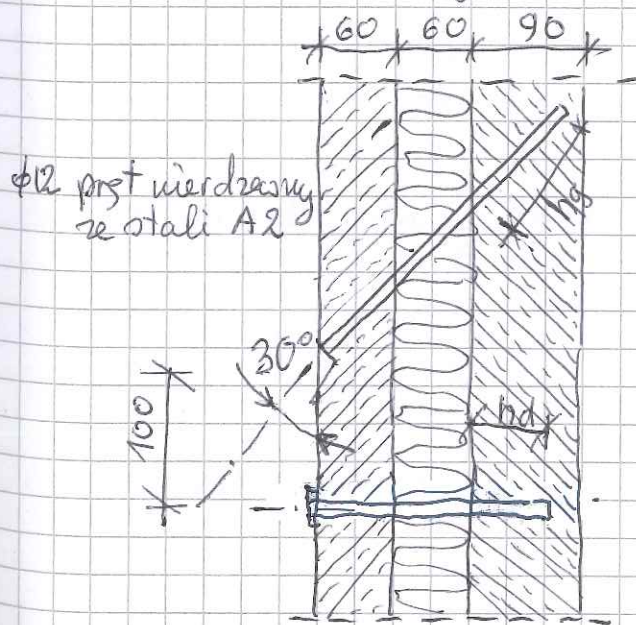 60 60 90
ϕ12 pręt nierdzewny
ze stali A2
hg
30°
100
hd